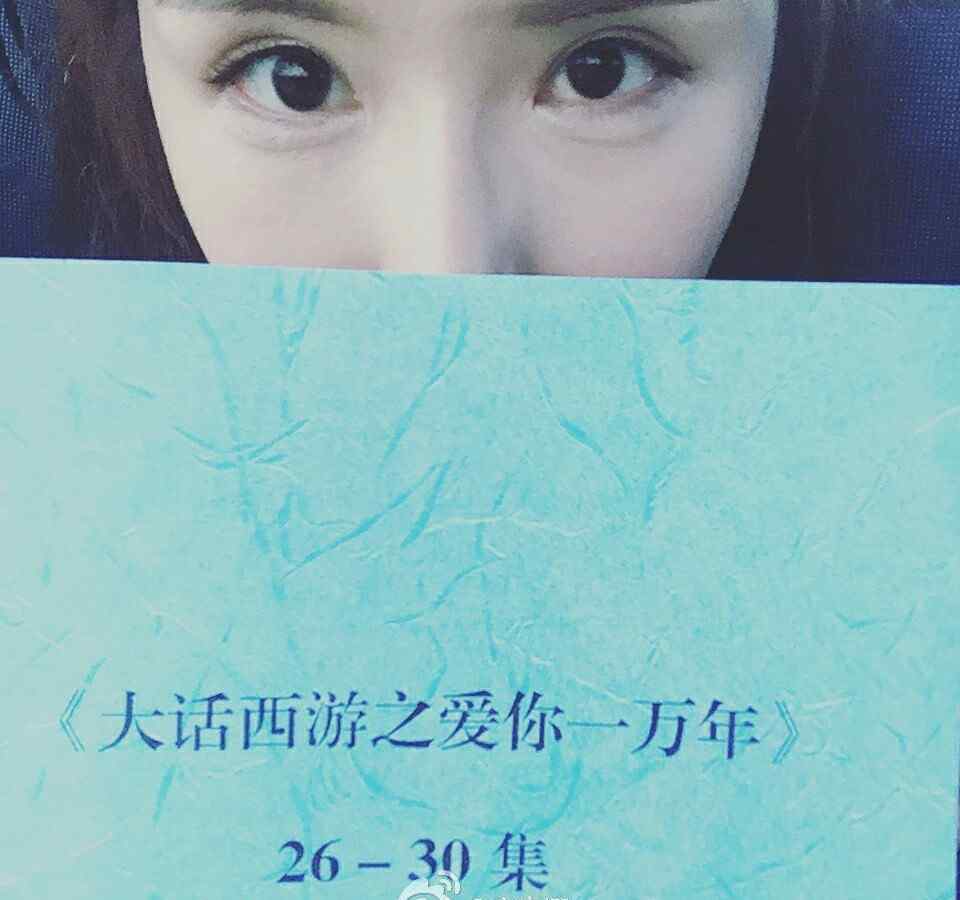 《大话西游之爱你一万年》
26-30 集